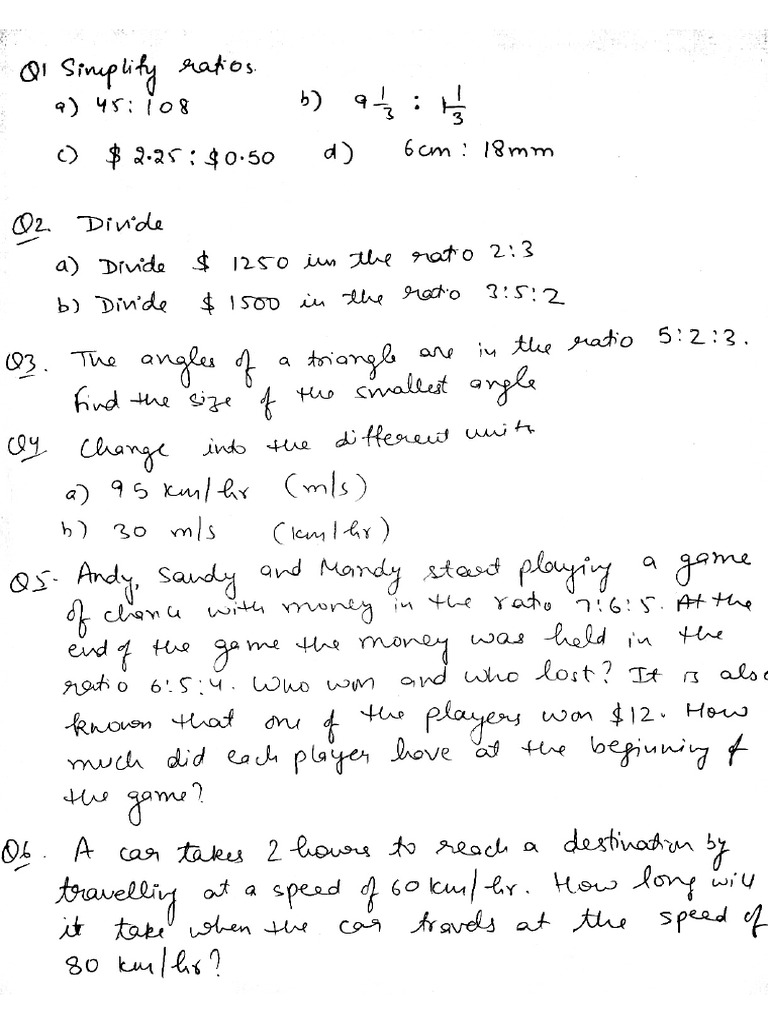 Q1 Simplify ratios.
a) 45:108 b) 9 1/3 : 1 1/3
c) $2.25 : $0.50 d) 6cm : 18mm
Q2. Divide
a) Divide $ 1250 in the ratio 2:3
b) Divide $ 1500 in the ratio 3:5:2
Q3. The angles of a triangle are in the ratio 5:2:3.
Find the size of the smallest angle
Q4 Change into the different units
a) 95 km/hr (m/s)
b) 30 m/s (km/hr)
Q5. Andy, Sandy and Mandy start playing a game
of chance with money in the ratio 7:6:5. At the
end of the game the money was held in the
ratio 6:5:4. Who won and who lost? It is also
known that one of the players won $12. How
much did each player have at the beginning of
the game?
Q6. A car takes 2 hours to reach a destination by
travelling at a speed of 60 km/hr. How long will
it take when the car travels at the speed of
80 km/hr?